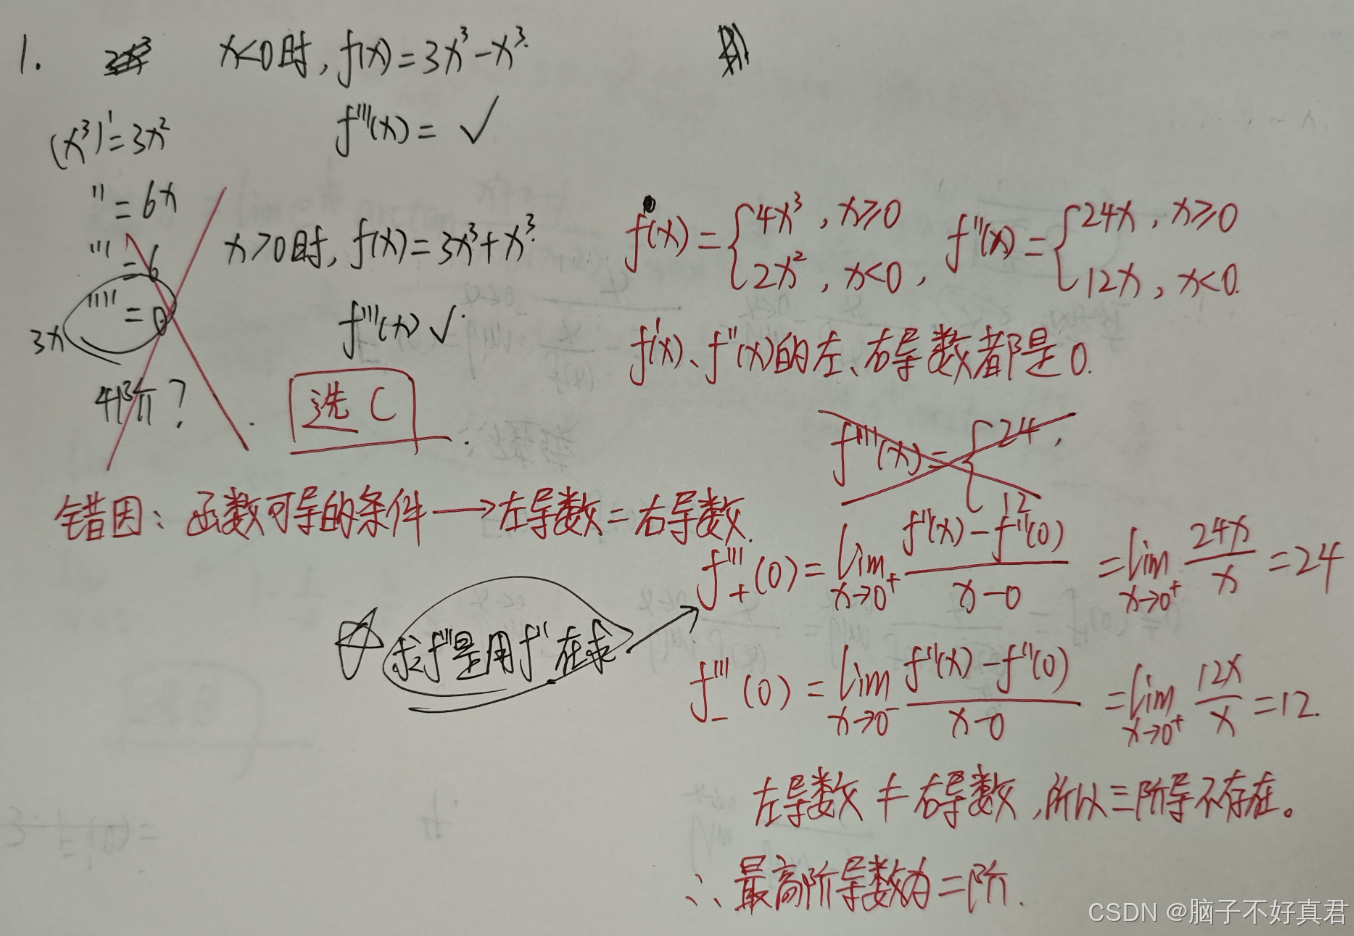 1. x<0时, f(x)=3x³-x³.
(x³)'=3x²
f'''(x)= ✓
''=6x
'''=6
''''=0
3x
4阶?
x>0时, f(x)=3x³+x³.
f'''(x)✓.
选C
f(x)={4x³, x≥0
2x², x<0,
f''(x)={24x, x≥0
12x, x<0.
f'(x)、f''(x)的左、右导数都是0.
f'''(x)={24,
12
错因: 函数可导的条件→左导数=右导数.
f'''₊(0)=lim x→0⁺ f''(x)-f''(0) / x-0 =lim x→0⁺ 24x/x =24
求f'''是用f''在求
f'''₋(0)=lim x→0⁻ f''(x)-f''(0) / x-0 =lim x→0⁺ 12x/x =12.
左导数≠右导数,所以三阶导不存在。
∴最高阶导数为二阶.
CSDN @脑子不好真君